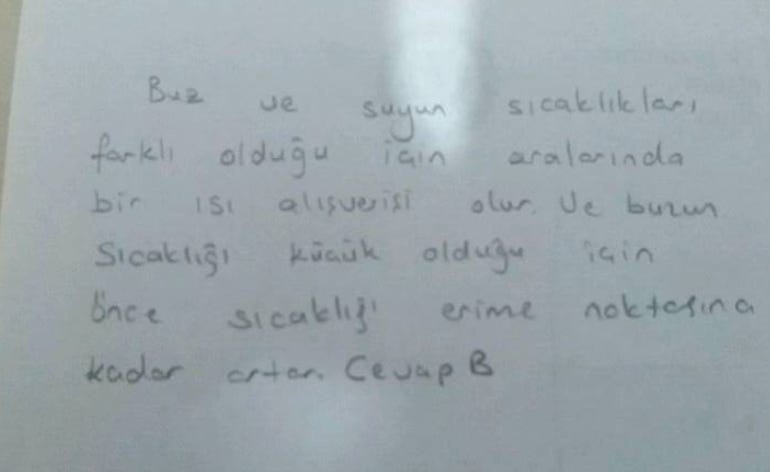 Buz ve suyun sıcaklıkları
farklı olduğu için aralarında
bir ısı alışverişi olur. Ve buzun
Sıcaklığı küçük olduğu için
önce sıcaklığı erime noktasına
kadar artar. Cevap B